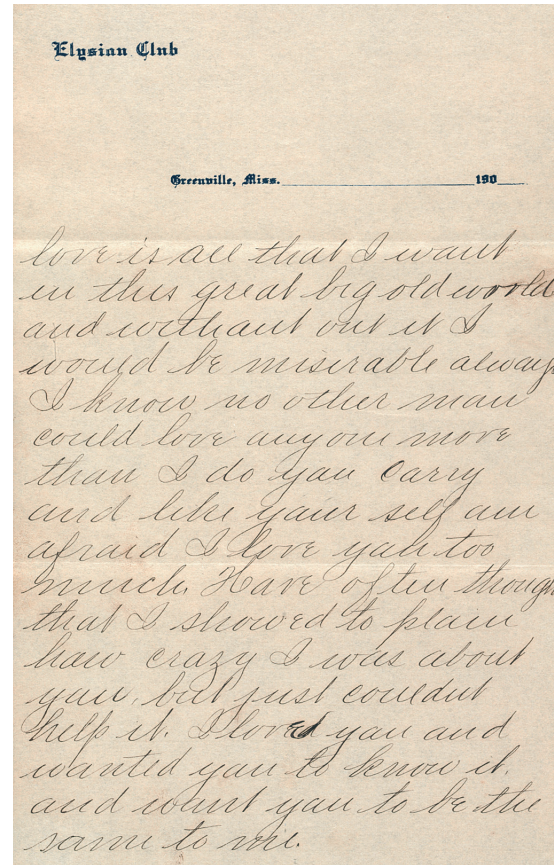 Elysian Club
Greenville, Miss. 190
love is all that I want
in this great big old world
and without out it I
would be miserable always
I know no other man
could love anyone more
than I do you Carry
and like your self am
afraid I love you too
much. Have often though
that I showed to plain
how crazy I was about
you, but just couldnt
help it. I loved you and
wanted you to know it.
and want you to be the
same to me.